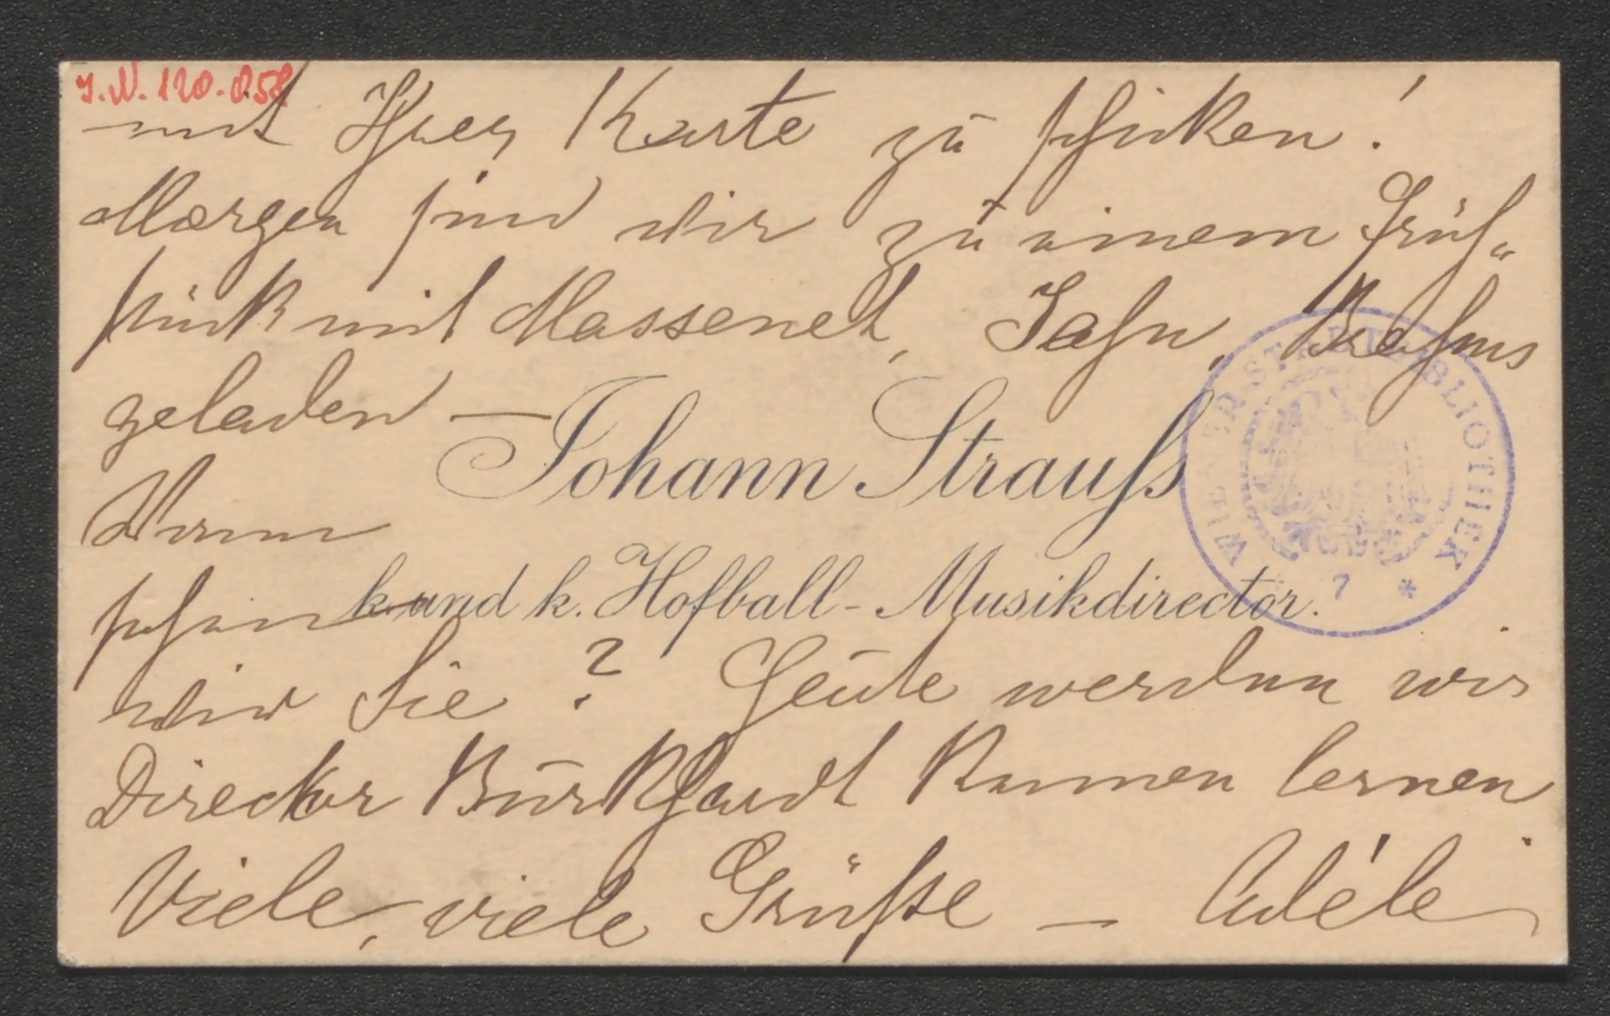 J.N. 120.858
mit Ihrer Karte zu schicken!
Morgen sind wir zu einem Früh„
stück mit Massenet, Jahn, Brahms
geladen —
Johann Strauss
Wann
k. und k. Hofball-Musikdirector.
sehen
wir Sie? Heute werden wir
Director Burkhardt kennen lernen
Viele, viele Grüsse — Adéle
WIENER STADTBIBLIOTHEK
7 *